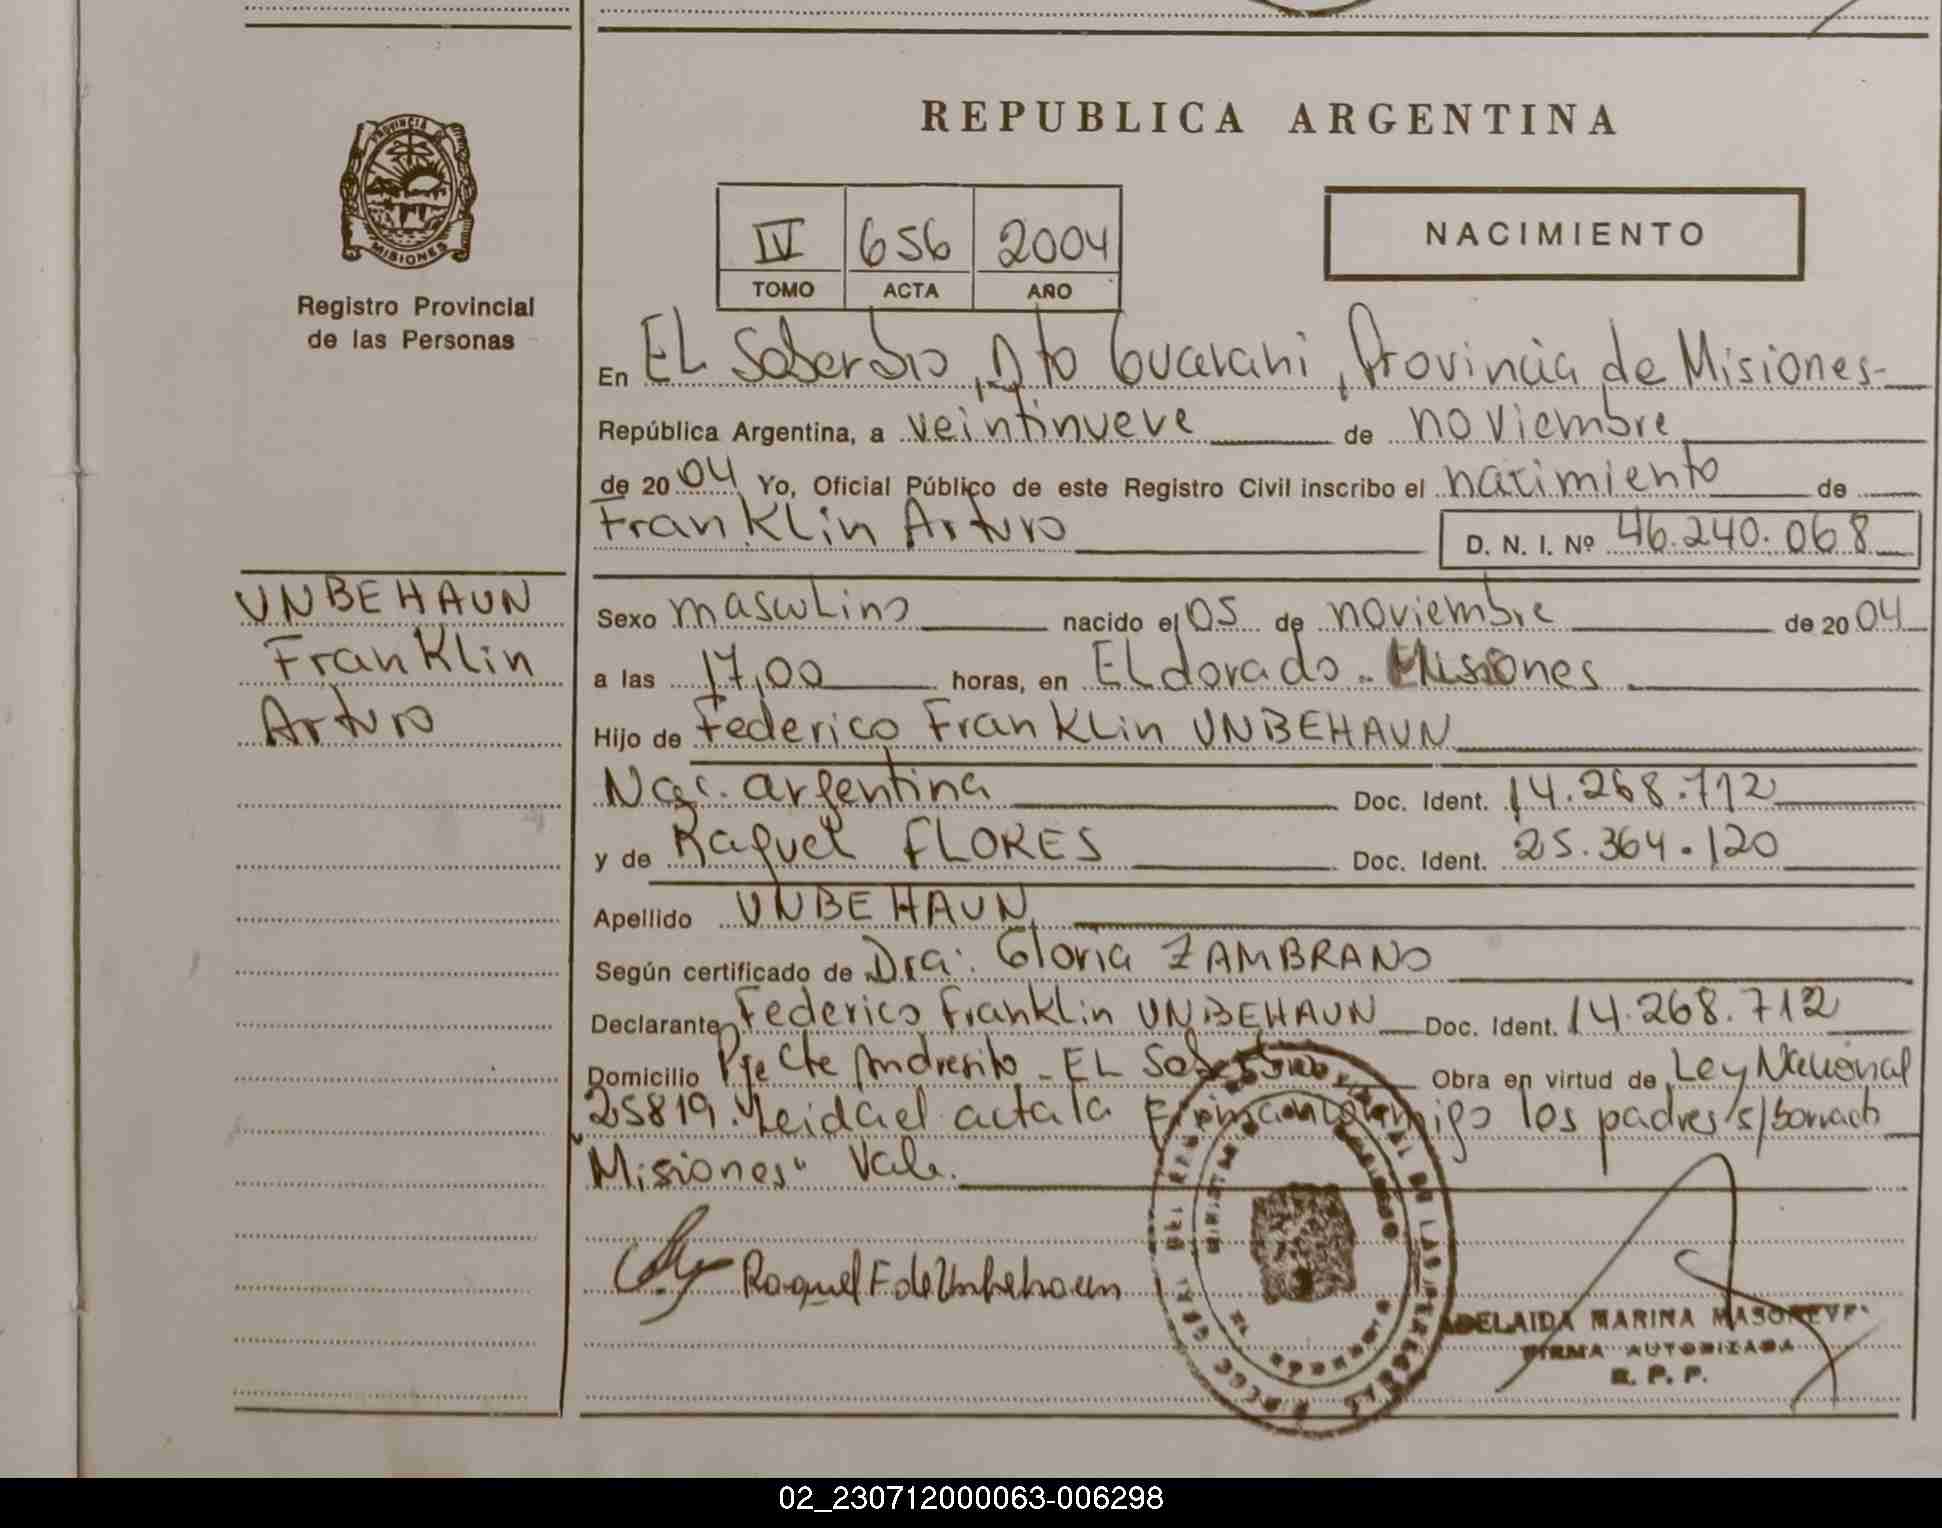 REPUBLICA ARGENTINA
PROVINCIA DE
MISIONES
Registro Provincial
de las Personas
IV 656 2004
TOMO ACTA AÑO
NACIMIENTO
En EL Soberbio, Dto Guarani, Provincia de Misiones-
República Argentina, a veintinueve de noviembre
de 2004 Yo, Oficial Público de este Registro Civil inscribo el nacimiento de
Franklin Arturo D. N. I. Nº 46.240.068
UNBEHAUN
Franklin
Arturo
Sexo masculino nacido el 05 de noviembre de 2004
a las 17,00 horas, en Eldorado - Misiones
Hijo de Federico Franklin UNBEHAUN
Nac. argentina Doc. Ident. 14.268.712
y de Raquel FLORES Doc. Ident. 25.364.120
Apellido UNBEHAUN
Según certificado de Dra: Gloria ZAMBRANO
Declarante Federico Franklin UNBEHAUN Doc. Ident. 14.268.712
Domicilio Pje Cte Andresito - EL Soberbio Obra en virtud de Ley Nacional
25819. Leida el acta la Firman conmigo los padres s/borrado
"Misiones" Vale.
Raquel F de Unbehaun
ADELAIDA MARINA
FIRMA AUTORIZADA
R. P. P.
02_230712000063-006298